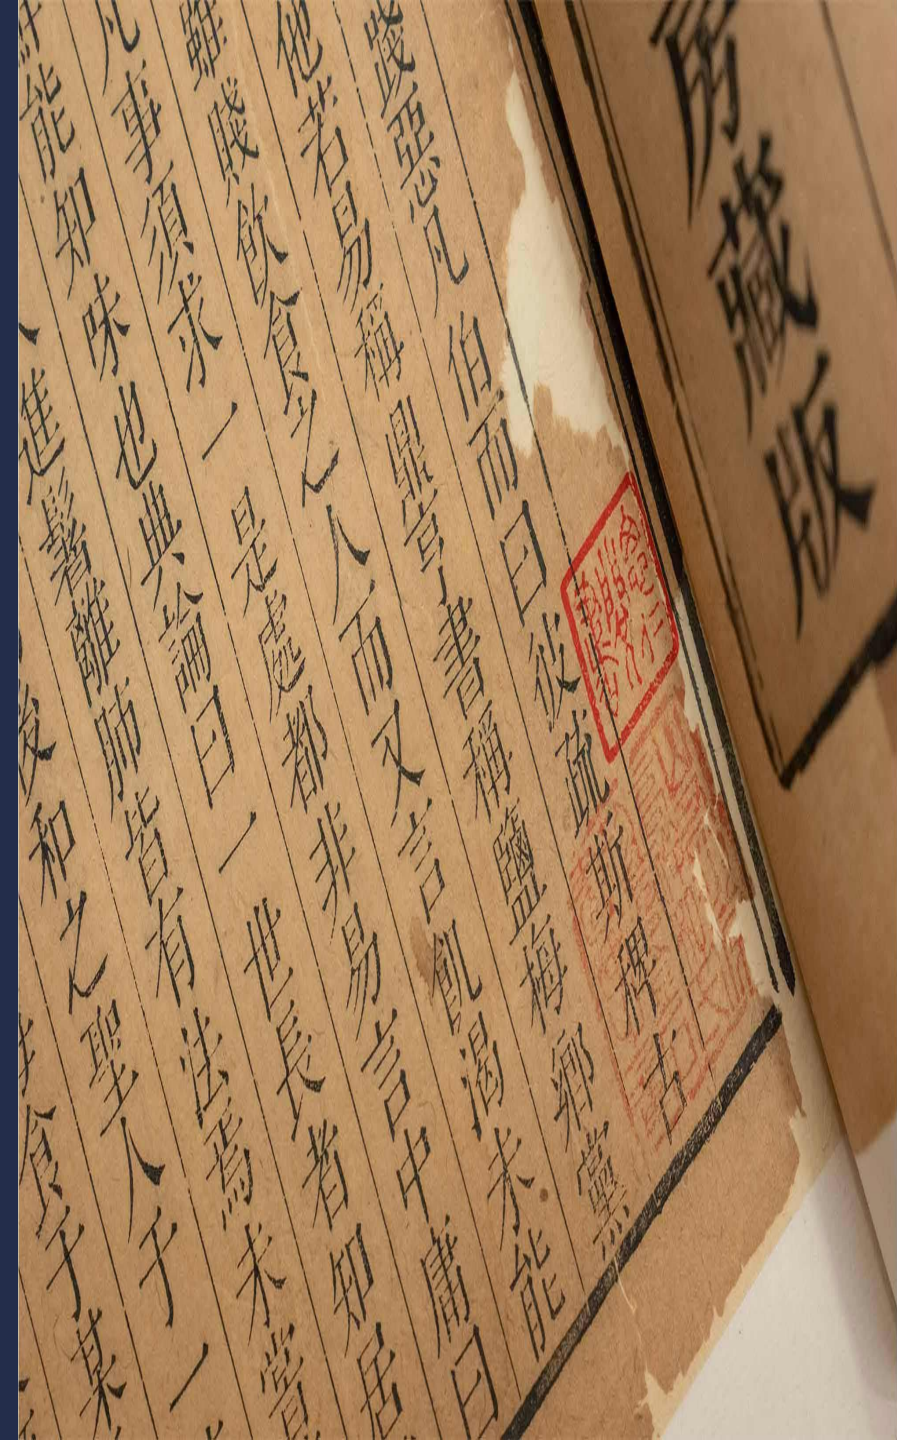 房藏版
踐惡凡伯而曰彼疏斯稗古
他若易稱鼎亨書稱鹽梅鄉黨
雖賤飲食之人而又言飢渴未能
凡事須求一是處都非易言中庸曰
鮮能知味也典論曰一世長者知居
進鬐離肺皆有法焉未嘗
後和之聖人于一
食于某